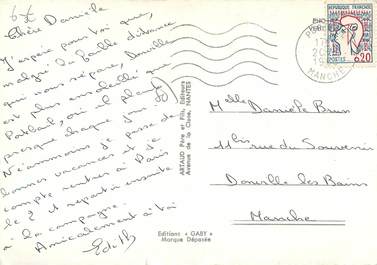 Chère Danièle
J'espère pour toi que,
malgré la faible distance
qui nous sépare, Donville
est plus ensoleillé que
où il pleut
presque chaque jour.
Néanmoins je passe de
bonnes vacances et je
compte rentrer à Paris
le 2 et repartir ensuite
à la campagne.
Amicalement à toi
Edith
ARTAUD Père et Fils, Editeurs
Avenue de la Close, NANTES
Editions « GABY »
Marque Déposée
REPUBLIQUE FRANÇAISE
POSTES
0,20
MANCHE
Melle Danièle Brun
11bis rue du Souvenir
Donville les Bains
Manche